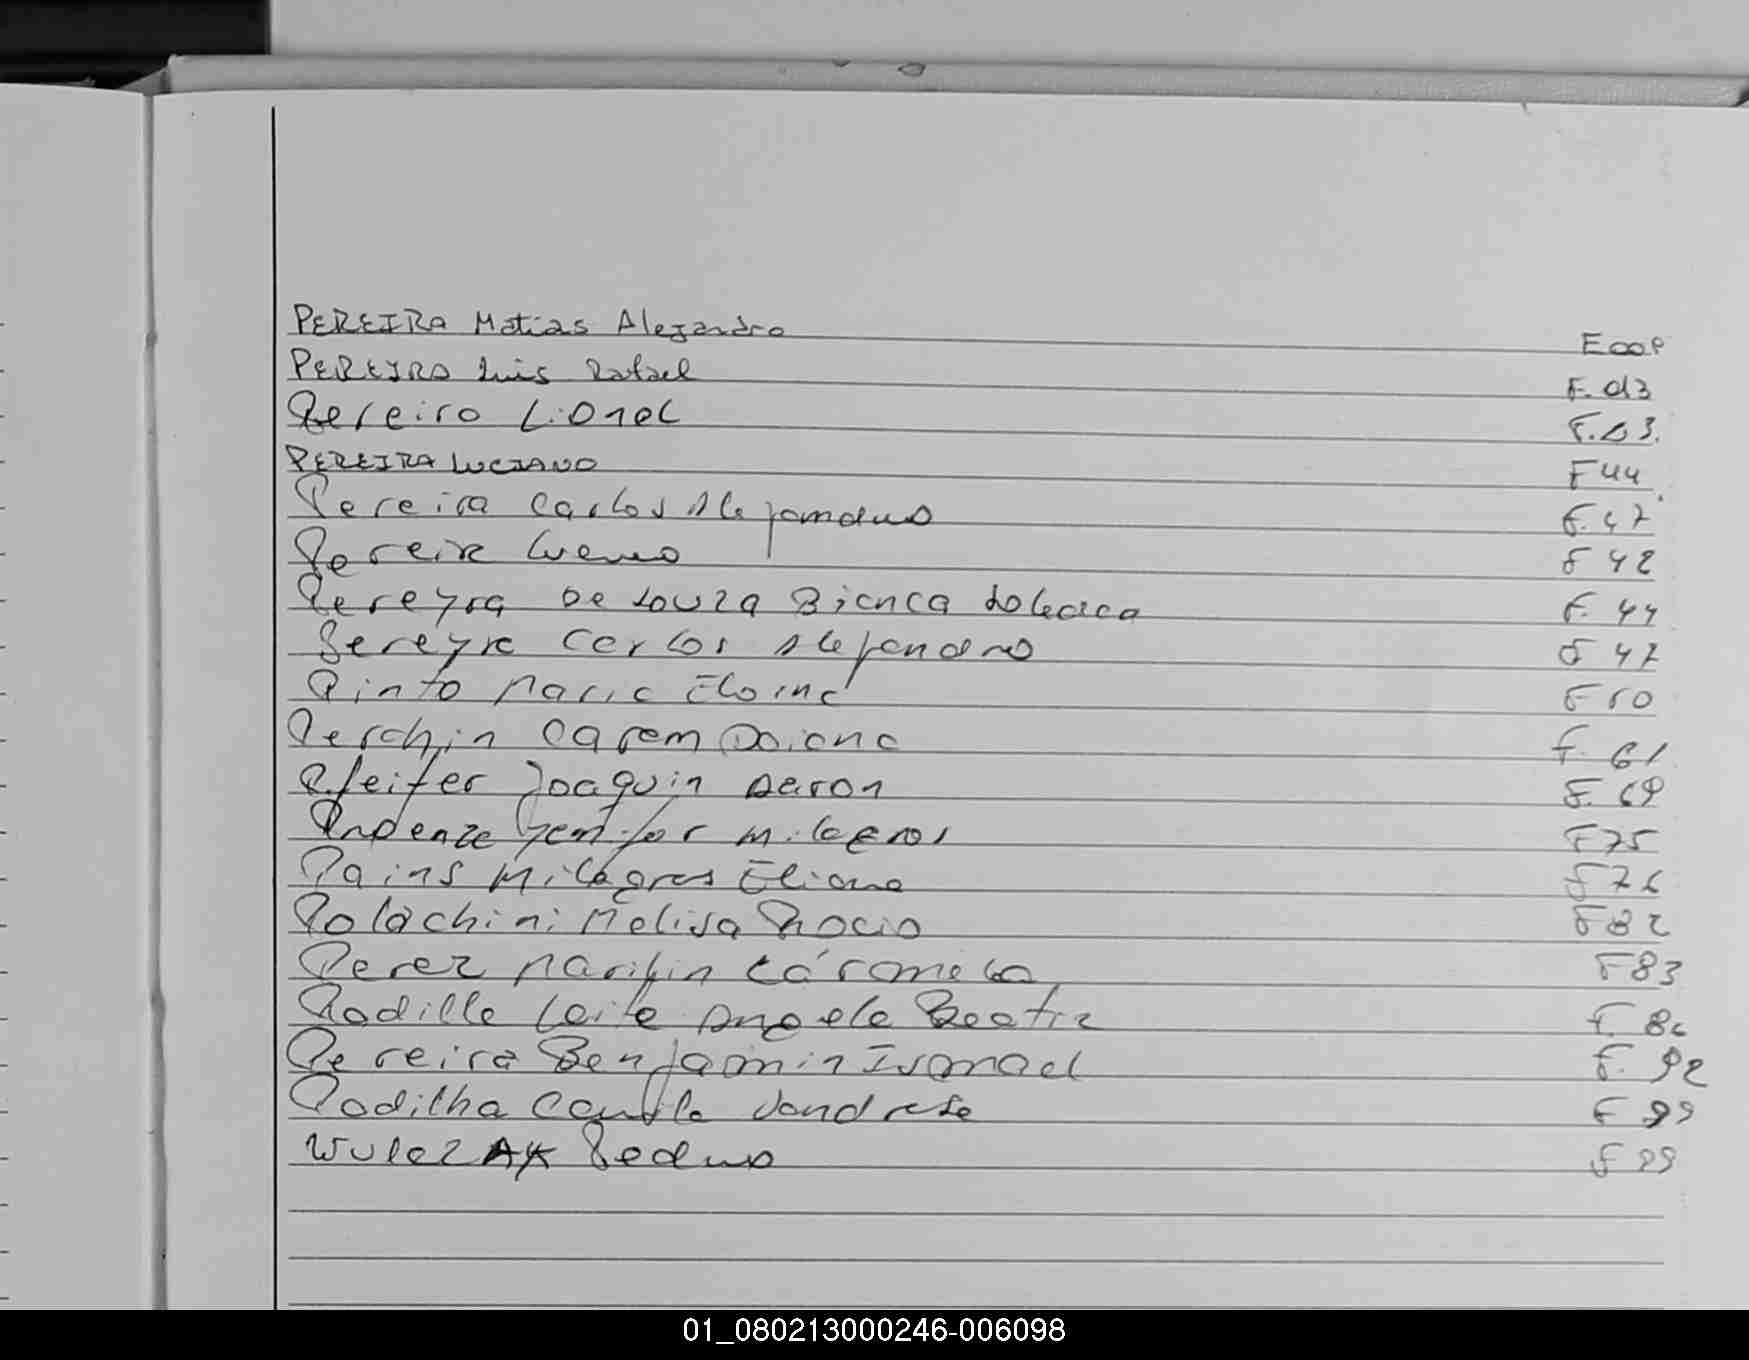 PEREIRA Matias Alejandro F001
PEREYRA Luis Rafael F. 013
Pereiro Lionel F. 03.
PEREIRA LUCIANO F44
Pereira Carlos Alejandro F. 47
Pereira F 42
Pereyra De Souza Bianca F. 44
Pereyra Carlos Alejandro F 47
Pinto Maria F 50
Perchin Carem Daiana F. 61
Pfeifer Joaquin Aaron F. 69
Milagros F75
Pains Milagros Eliana F76
Polachini Melisa Rocio F82
Perez F83
Padilla Leite Angela Beatriz F. 86
Pereira Benjamin Ismael F. 92
Padilha Camila F 99
Pedro F 99
01_080213000246-006098